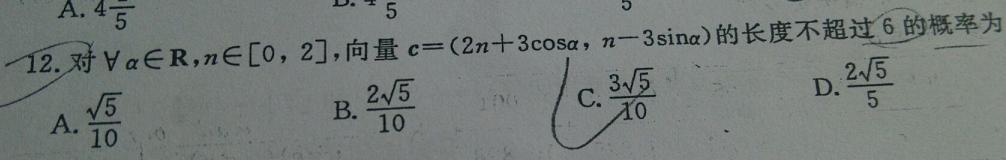 A. 4/5
5
5
12. 对∀α∈R,n∈[0, 2],向量 c=(2n+3cosα, n-3sinα)的长度不超过6的概率为
A. √5/10 B. 2√5/10 C. 3√5/10 D. 2√5/5